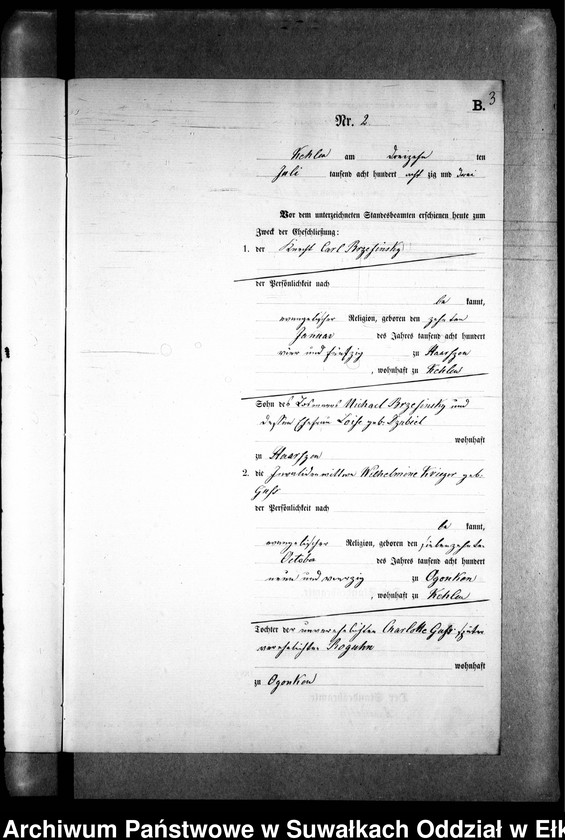 B. 3
Nr. 2
Kehlen am dreizehn ten
Juli tausend acht hundert acht zig und drei
Vor dem unterzeichneten Standesbeamten erschienen heute zum
Zweck der Eheschließung:
1. der Knecht Carl Brzesinsky
der Persönlichkeit nach
be kannt,
evangelischer Religion, geboren den zehnten
Januar des Jahres tausend acht hundert
vier und fünfzig zu Haarszen
, wohnhaft zu Kehlen
Sohn des Losmanns Michael Brzesinsky und
dessen Ehefrau Loise geb.
wohnhaft
zu Haarszen
2. die Invalidenwittwe Wilhelmine Krieger geb.
Guss
der Persönlichkeit nach
be kannt,
evangelischer Religion, geboren den siebenzehnten
October des Jahres tausend acht hundert
neun und vierzig zu Ogonken
, wohnhaft zu Kehlen
Tochter der unverehelichten Charlotte Guss später
verehelichten Roguhn
wohnhaft
zu Ogonken
Archiwum Państwowe w Suwałkach Oddział w Ełk